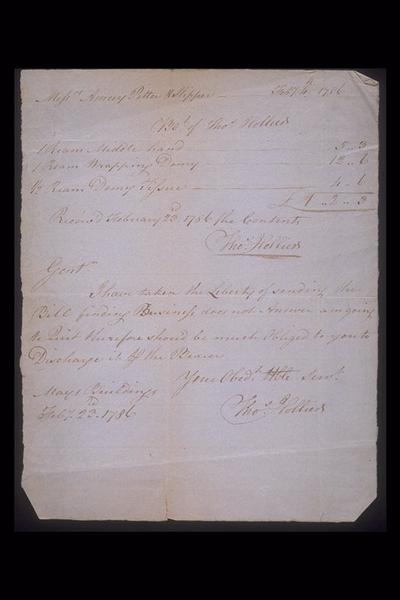 Messrs Amery Potter & Slipper — Feby 4th 1786
Bot of Thos Hollied
1 Ream Middle hand — 5 .. 3
1 Ream Wrapping Demy — 12 .. 6
1/2 Ream Demy Tissue — 4 .. 6
£ 1 .. 2 .. 3
Receiv'd February 23d 1786 the Contents
Thos Hollied
Gentn
I have taken the Liberty of sending the
Bill finding Business does not Answer am going
to Quit therefore should be much Obliged to you to
Discharge it by the Bearer
Your Obedt Hble Servt
Mays Buildings
Feby 23d 1786
Thos Hollied